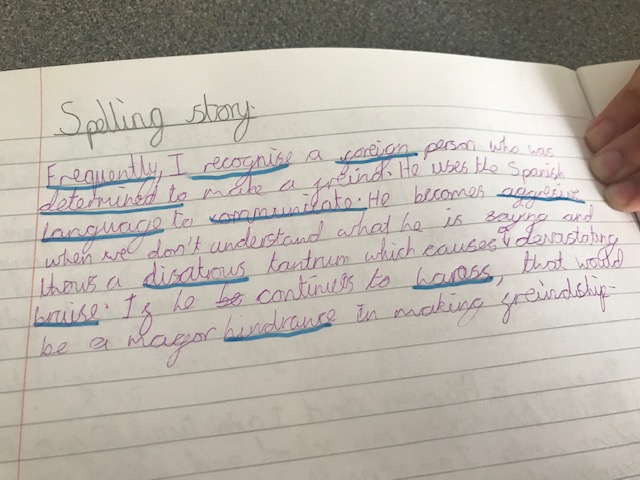 Spelling story.
Frequently, I recognise a foreign person who was
determined to make a freind. He uses the Spanish
language to communicate. He becomes aggresive
when we don't understand what he is saying and
thows a disatrous tantrum which causes a devastating
bruise. If he continues to harass, that would
be a magor hindrance in making freindship.